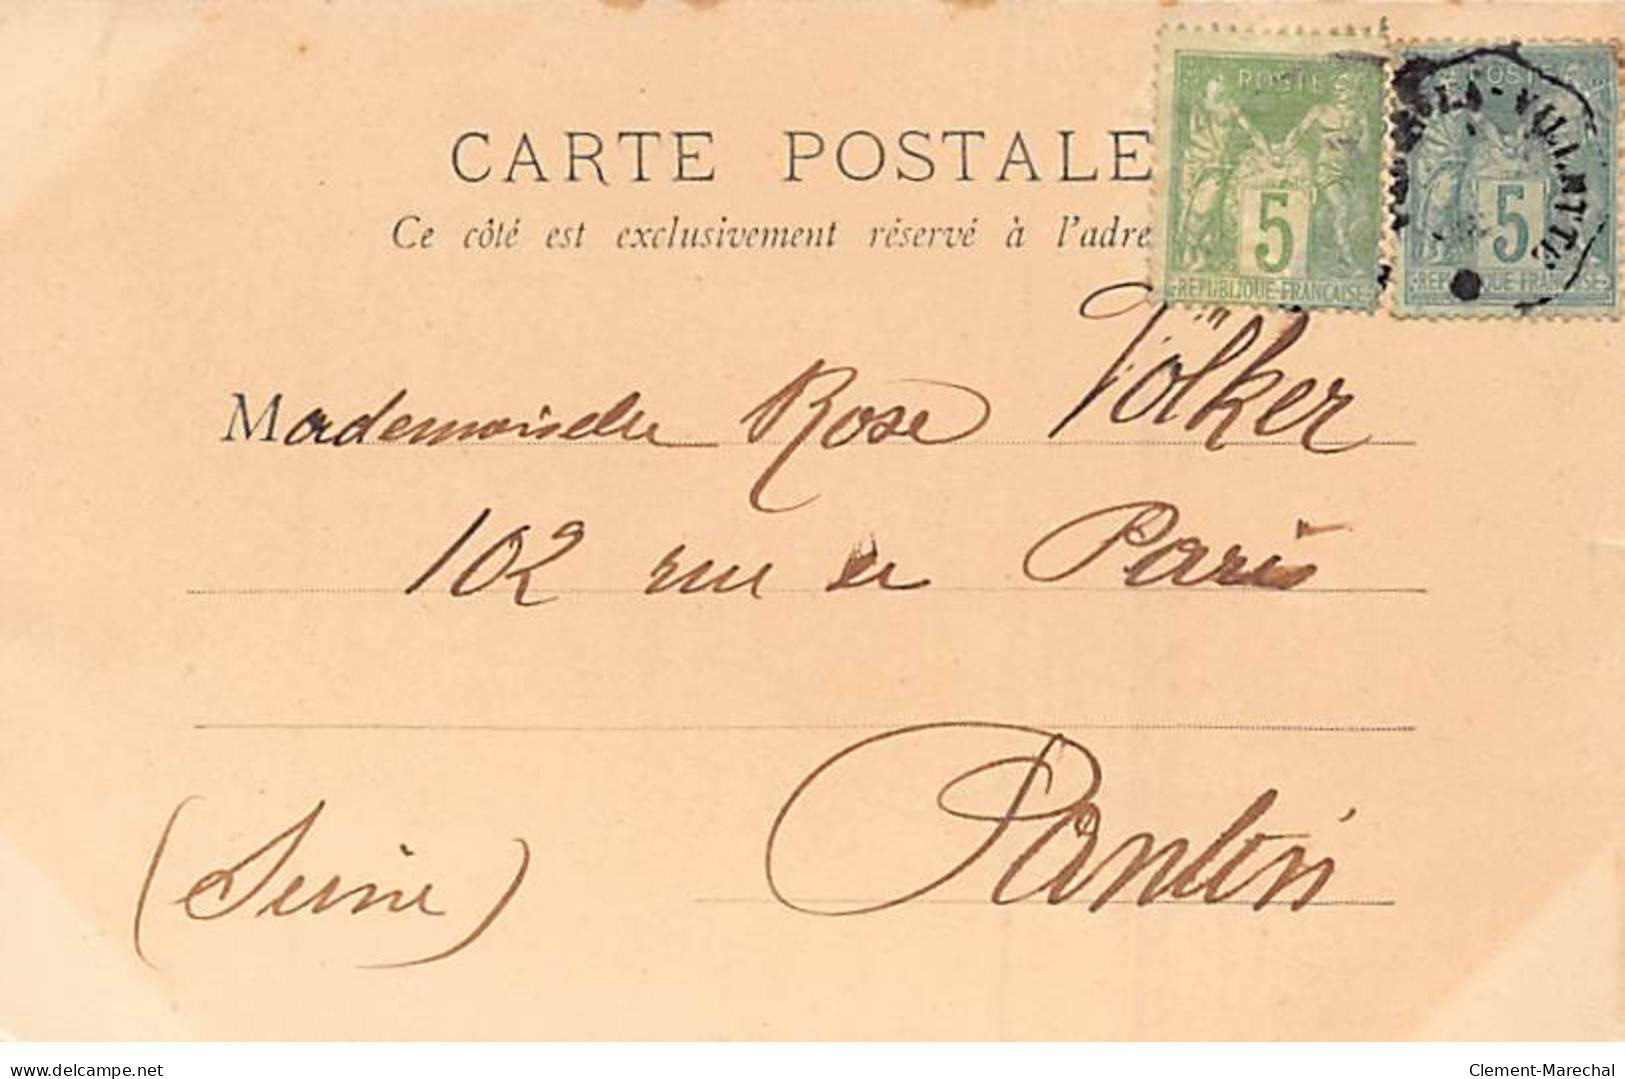 CARTE POSTALE
Ce côté est exclusivement réservé à l'adre
POSTE
5
REPUBLIQUE FRANÇAISE
POSTE
5
REPUBLIQUE FRANÇAISE
LA-VILLETTE
Mademoiselle Rose Völker
102 rue de Paris
Pantin
(Seine)
delcampe.net
Clement-Marechal